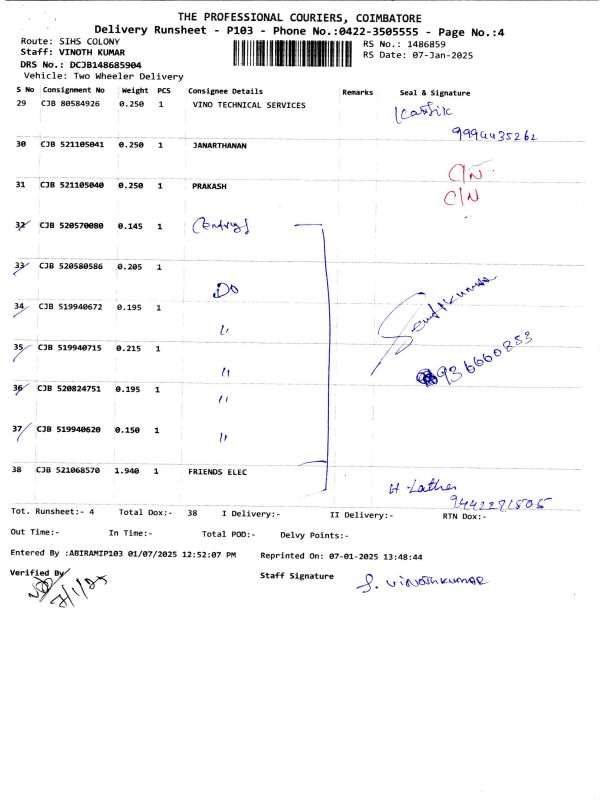 THE PROFESSIONAL COURIERS, COIMBATORE
Delivery Runsheet - P103 - Phone No.:0422-3505555 - Page No.:4
Route: SIHS COLONY
RS No.: 1486859
Staff: VINOTH KUMAR
RS Date: 07-Jan-2025
DRS No.: DCJB148685904
Vehicle: Two Wheeler Delivery
S No Consignment No Weight PCS Consignee Details Remarks Seal & Signature
29 CJB 80584926 0.250 1 VINO TECHNICAL SERVICES
Karsik
9994435262
30 CJB 521105041 0.250 1 JANARTHANAN
C/N
31 CJB 521105040 0.250 1 PRAKASH
C/N
32 CJB 520570080 0.145 1 (Entry)
33 CJB 520580586 0.205 1
Do
34 CJB 519940672 0.195 1
"
35 CJB 519940715 0.215 1
"
936660853
36 CJB 520824751 0.195 1
"
37 CJB 519940620 0.150 1
"
38 CJB 521068570 1.940 1 FRIENDS ELEC
H. Lather
9442271505
Tot. Runsheet:- 4 Total Dox:- 38 I Delivery:- II Delivery:- RTN Dox:-
Out Time:- In Time:- Total POD:- Delvy Points:-
Entered By :ABIRAMIP103 01/07/2025 12:52:07 PM Reprinted On: 07-01-2025 13:48:44
Verified By
Staff Signature
S. VINOTHKUMAR
7/1/25